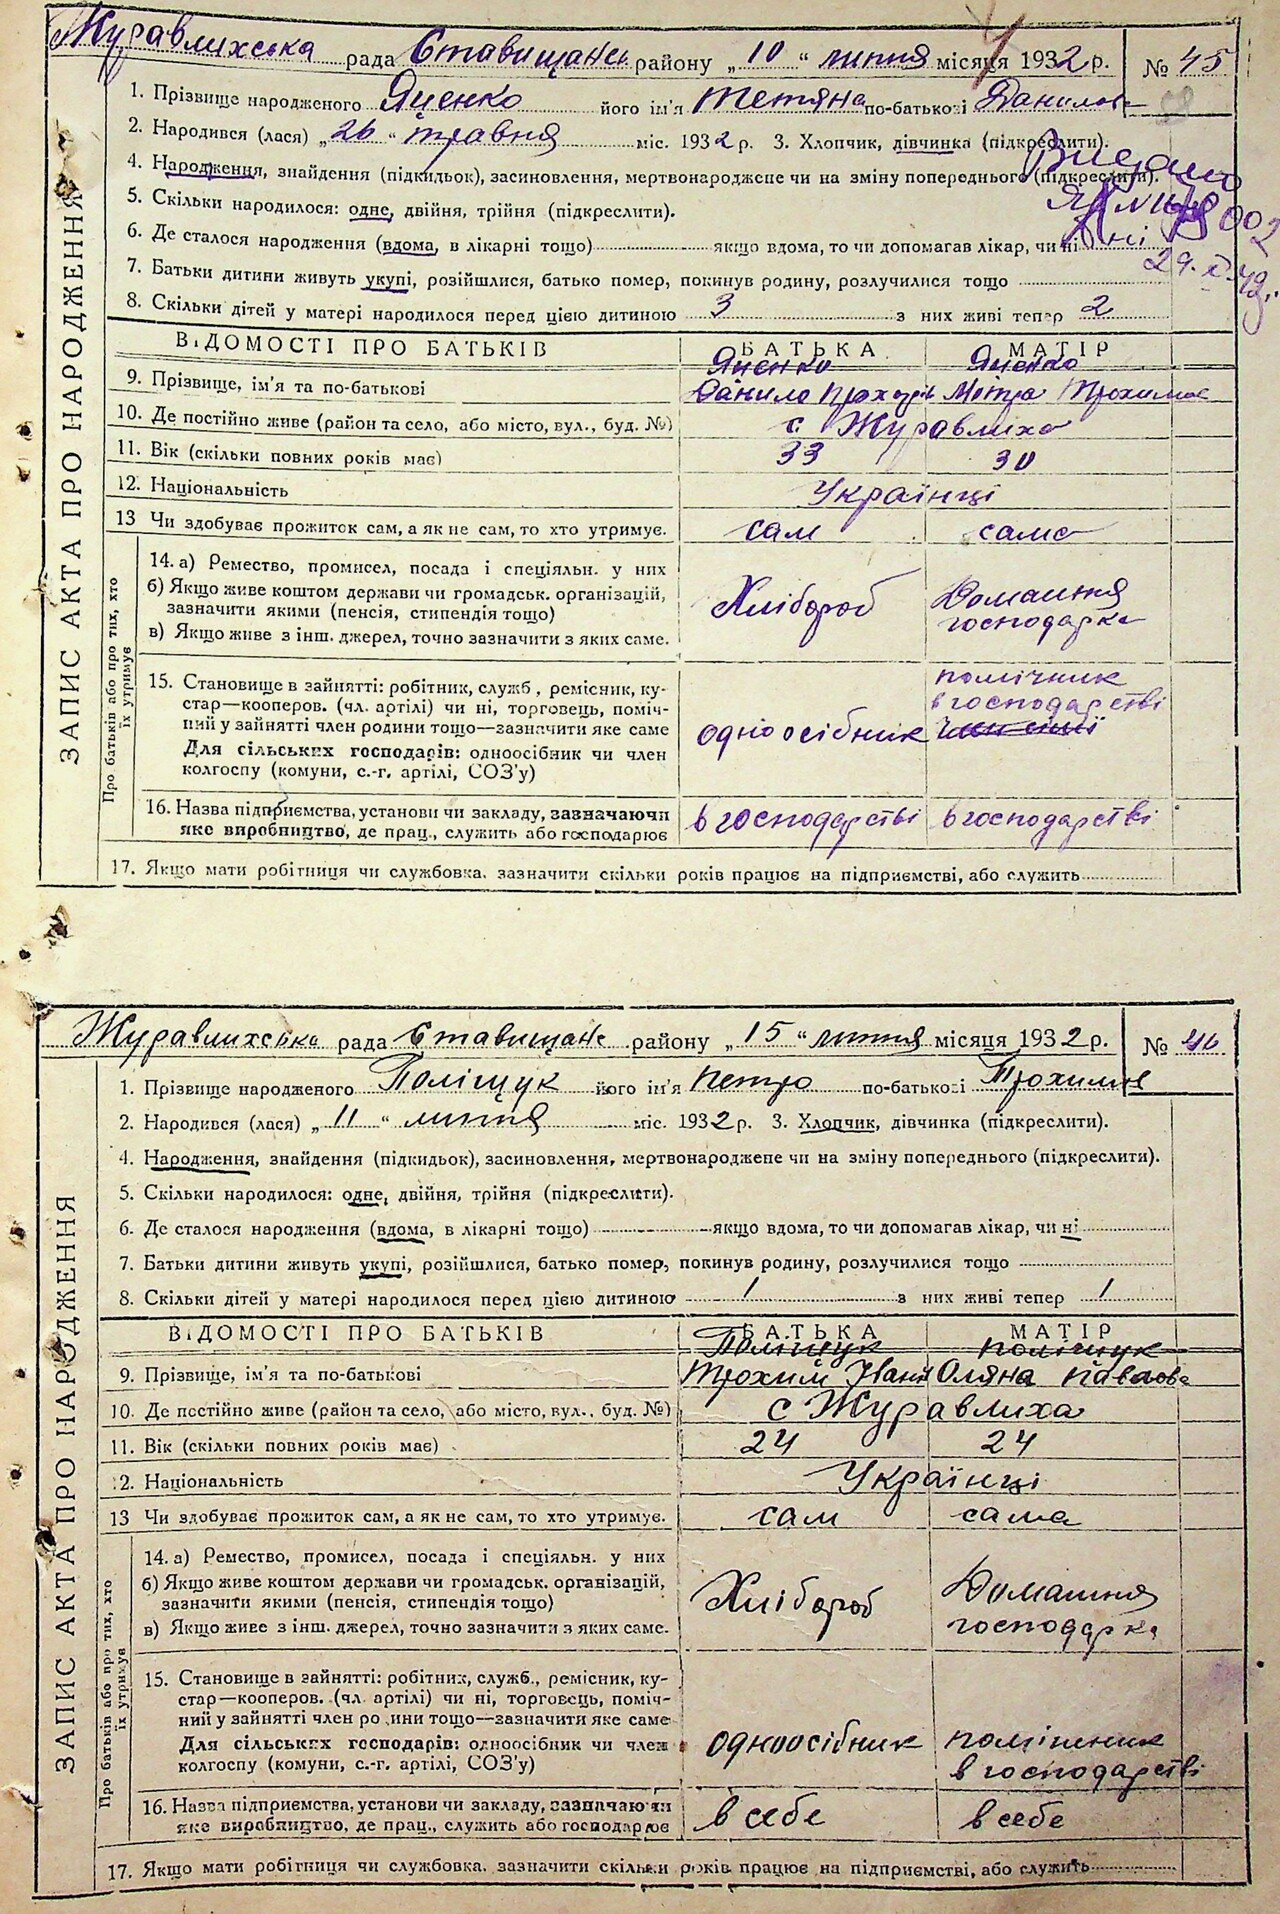 Журавлихська рада Ставищанс. району „10“ липня місяця 1932 р. № 45
1. Прізвище народженого Яценко його ім'я Тетяна по-батькові Данилов
2. Народився (лася) „26“ травня міс. 1932 р. 3. Хлопчик, дівчинка (підкреслити).
4. Народження, знайдення (підкидьок), засиновлення, мертвонароджене чи на зміну попереднього (підкреслити).
Видано
5. Скільки народилося: одне, двійня, трійня (підкреслити).
6. Де сталося народження (вдома, в лікарні тощо) якщо вдома, то чи допомагав лікар, чи ні ні
7. Батьки дитини живуть укупі, розійшлися, батько помер, покинув родину, розлучилися тощо
8. Скільки дітей у матері народилося перед цією дитиною 3 з них живі тепер 2
ЗАПИС АКТА ПРО НАРОДЖЕННЯ
ВІДОМОСТІ ПРО БАТЬКІВ БАТЬКА МАТІР
Яценко Яценко
9. Прізвище, ім'я та по-батькові Данило Прохорів Мотря Трохимов
10. Де постійно живе (район та село, або місто, вул., буд. №) с. Журавлиха
11. Вік (скільки повних років має) 33 30
12. Національність Українці
13 Чи здобуває прожиток сам, а як не сам, то хто утримує. сам сама
Про батьків або про тих, хто
їх утримує
14. а) Ремество, промисел, посада і спеціяльн. у них
б) Якщо живе коштом держави чи громадськ. організацій, Хлібороб Домашня
зазначити якими (пенсія, стипендія тощо) господарка
в) Якщо живе з інш. джерел, точно зазначити з яких саме.
15. Становище в зайнятті: робітник, служб, ремісник, ку- помічник
стар—кооперов. (чл. артілі) чи ні, торговець, поміч- в господарстві
ний у зайнятті член родини тощо—зазначити яке саме одноосібник
Для сільських господарів: одноосібник чи член
колгоспу (комуни, с.-г. артілі, СОЗ'у)
16. Назва підприємства, установи чи закладу, зазначаючи в господарстві в господарстві
яке виробництво, де прац., служить або господарює
17. Якщо мати робітниця чи службовка, зазначити скільки років працює на підприємстві, або служить
Журавлихська рада Ставищанс. району „15“ липня місяця 1932 р. № 46
1. Прізвище народженого Поліщук його ім'я Петро по-батькові Трохимов
2. Народився (лася) „11“ липня міс. 1932 р. 3. Хлопчик, дівчинка (підкреслити).
4. Народження, знайдення (підкидьок), засиновлення, мертвонароджене чи на зміну попереднього (підкреслити).
5. Скільки народилося: одне, двійня, трійня (підкреслити).
6. Де сталося народження (вдома, в лікарні тощо) якщо вдома, то чи допомагав лікар, чи ні
7. Батьки дитини живуть укупі, розійшлися, батько помер, покинув родину, розлучилися тощо
8. Скільки дітей у матері народилося перед цією дитиною 1 з них живі тепер 1
ЗАПИС АКТА ПРО НАРОДЖЕННЯ
ВІДОМОСТІ ПРО БАТЬКІВ БАТЬКА МАТІР
Поліщук Поліщук
9. Прізвище, ім'я та по-батькові Трохим Іван Оляна Павлова
10. Де постійно живе (район та село, або місто, вул., буд. №) с Журавлиха
11. Вік (скільки повних років має) 24 24
2. Національність Українці
13 Чи здобуває прожиток сам, а як не сам, то хто утримує. сам сама
Про батьків або про тих, хто
їх утримує
14. а) Ремество, промисел, посада і спеціяльн. у них
б) Якщо живе коштом держави чи громадськ. організацій, Хлібороб Домашня
зазначити якими (пенсія, стипендія тощо) господарка
в) Якщо живе з інш. джерел, точно зазначити з яких саме.
15. Становище в зайнятті: робітник, служб., ремісник, ку-
стар—кооперов. (чл. артілі) чи ні, торговець, поміч-
ний у зайнятті член родини тощо—зазначити яке саме
Для сільських господарів: одноосібник чи член одноосібник помішник
колгоспу (комуни, с.-г. артілі, СОЗ'у) в господарстві
16. Назва підприємства, установи чи закладу, зазначаючи в себе в себе
яке виробництво, де прац., служить або господарює
17. Якщо мати робітниця чи службовка, зазначити скільки років працює на підприємстві, або служить